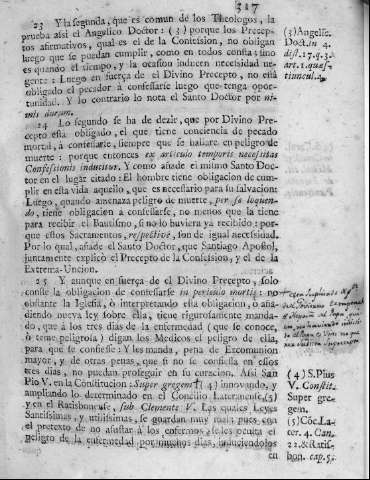 317
23 Y la segunda, que es comun de los Theologos, la
prueba assi el Angelico Doctor: (3) porque los Precep-
tos afirmativos, qual es el de la Confesion, no obligan
luego que se puedan cumplir, como en todos consta: sino
es quando el tiempo, y la ocasion inducen necesidad ur-
gente: Luego en fuerza de el Divino Precepto, no está
obligado el pecador á confesarse luego que tenga opor-
tunidad. Y lo contrario lo nota el Santo Doctor por ni-
mis durum.
24 Lo segundo se ha de dezir, que por Divino Pre-
cepto está obligado, el que tiene conciencia de pecado
mortal, á confesarse, siempre que se hallare en peligro de
muerte: porque entonces ex articulo temporis necesitas
Confesionis inducitur. Y como añade el mismo Santo Doc-
tor en el lugar citado: El hombre tiene obligacion de cum-
plir en esta vida aquello, que es necesario para su salvacion:
Luego, quando amenaza peligro de muerte, per se loquen-
do, tiene obligacion á confesarse, no menos que la tiene
para recibir el Bautismo, si no lo huviera ya recibido: por-
que estos Sacramentos, respectivè, son de igual necesidad.
Por lo qual, añade el Santo Doctor, que Santiago Apostol,
juntamente explicó el Precepto de la Confesion, y el de la
Extrema-Uncion.
25 Y aunque en fuerza de el Divino Precepto, solo
conste la obligacion de confesarse in periculo mortis: no
obstante la Iglesia, ò interpretando esta obligacion, ò aña-
diendo nueva ley sobre ella, tiene rigurosamente manda-
do, que á los tres dias de la enfermedad (que se conoce,
ò teme peligrosa) digan los Medicos el peligro de ella,
para que se confiese: Y les manda, pena de Excomunion
mayor, y de otras penas, que si no se confiesa en esos
tres dias, no puedan proseguir en su curacion. Asi San
Pio V. en la Constitucion: Super gregem† (4) innovando, y
ampliando lo determinado en el Concilio Lateranense, (5)
y en el Ratisbonense, sub Clemente V. Las quales Leyes
Santisimas, y utilisimas, se guardan muy mal; pues con
el pretexto de no asustar á los enfermos se les oculta el
peligro de la enfermedad por muchos dias, induciendolos
en
(3) Angelic.
Doct. in 4.
dist. 17. q. 3.
art. 1. quæs-
tiuncul. 4.
(4) S. Pius
V. Constit.
Super gre-
gem.
(5) Cõc. La-
ter. 4. Can.
22. & Ratis-
bon. cap. 5.